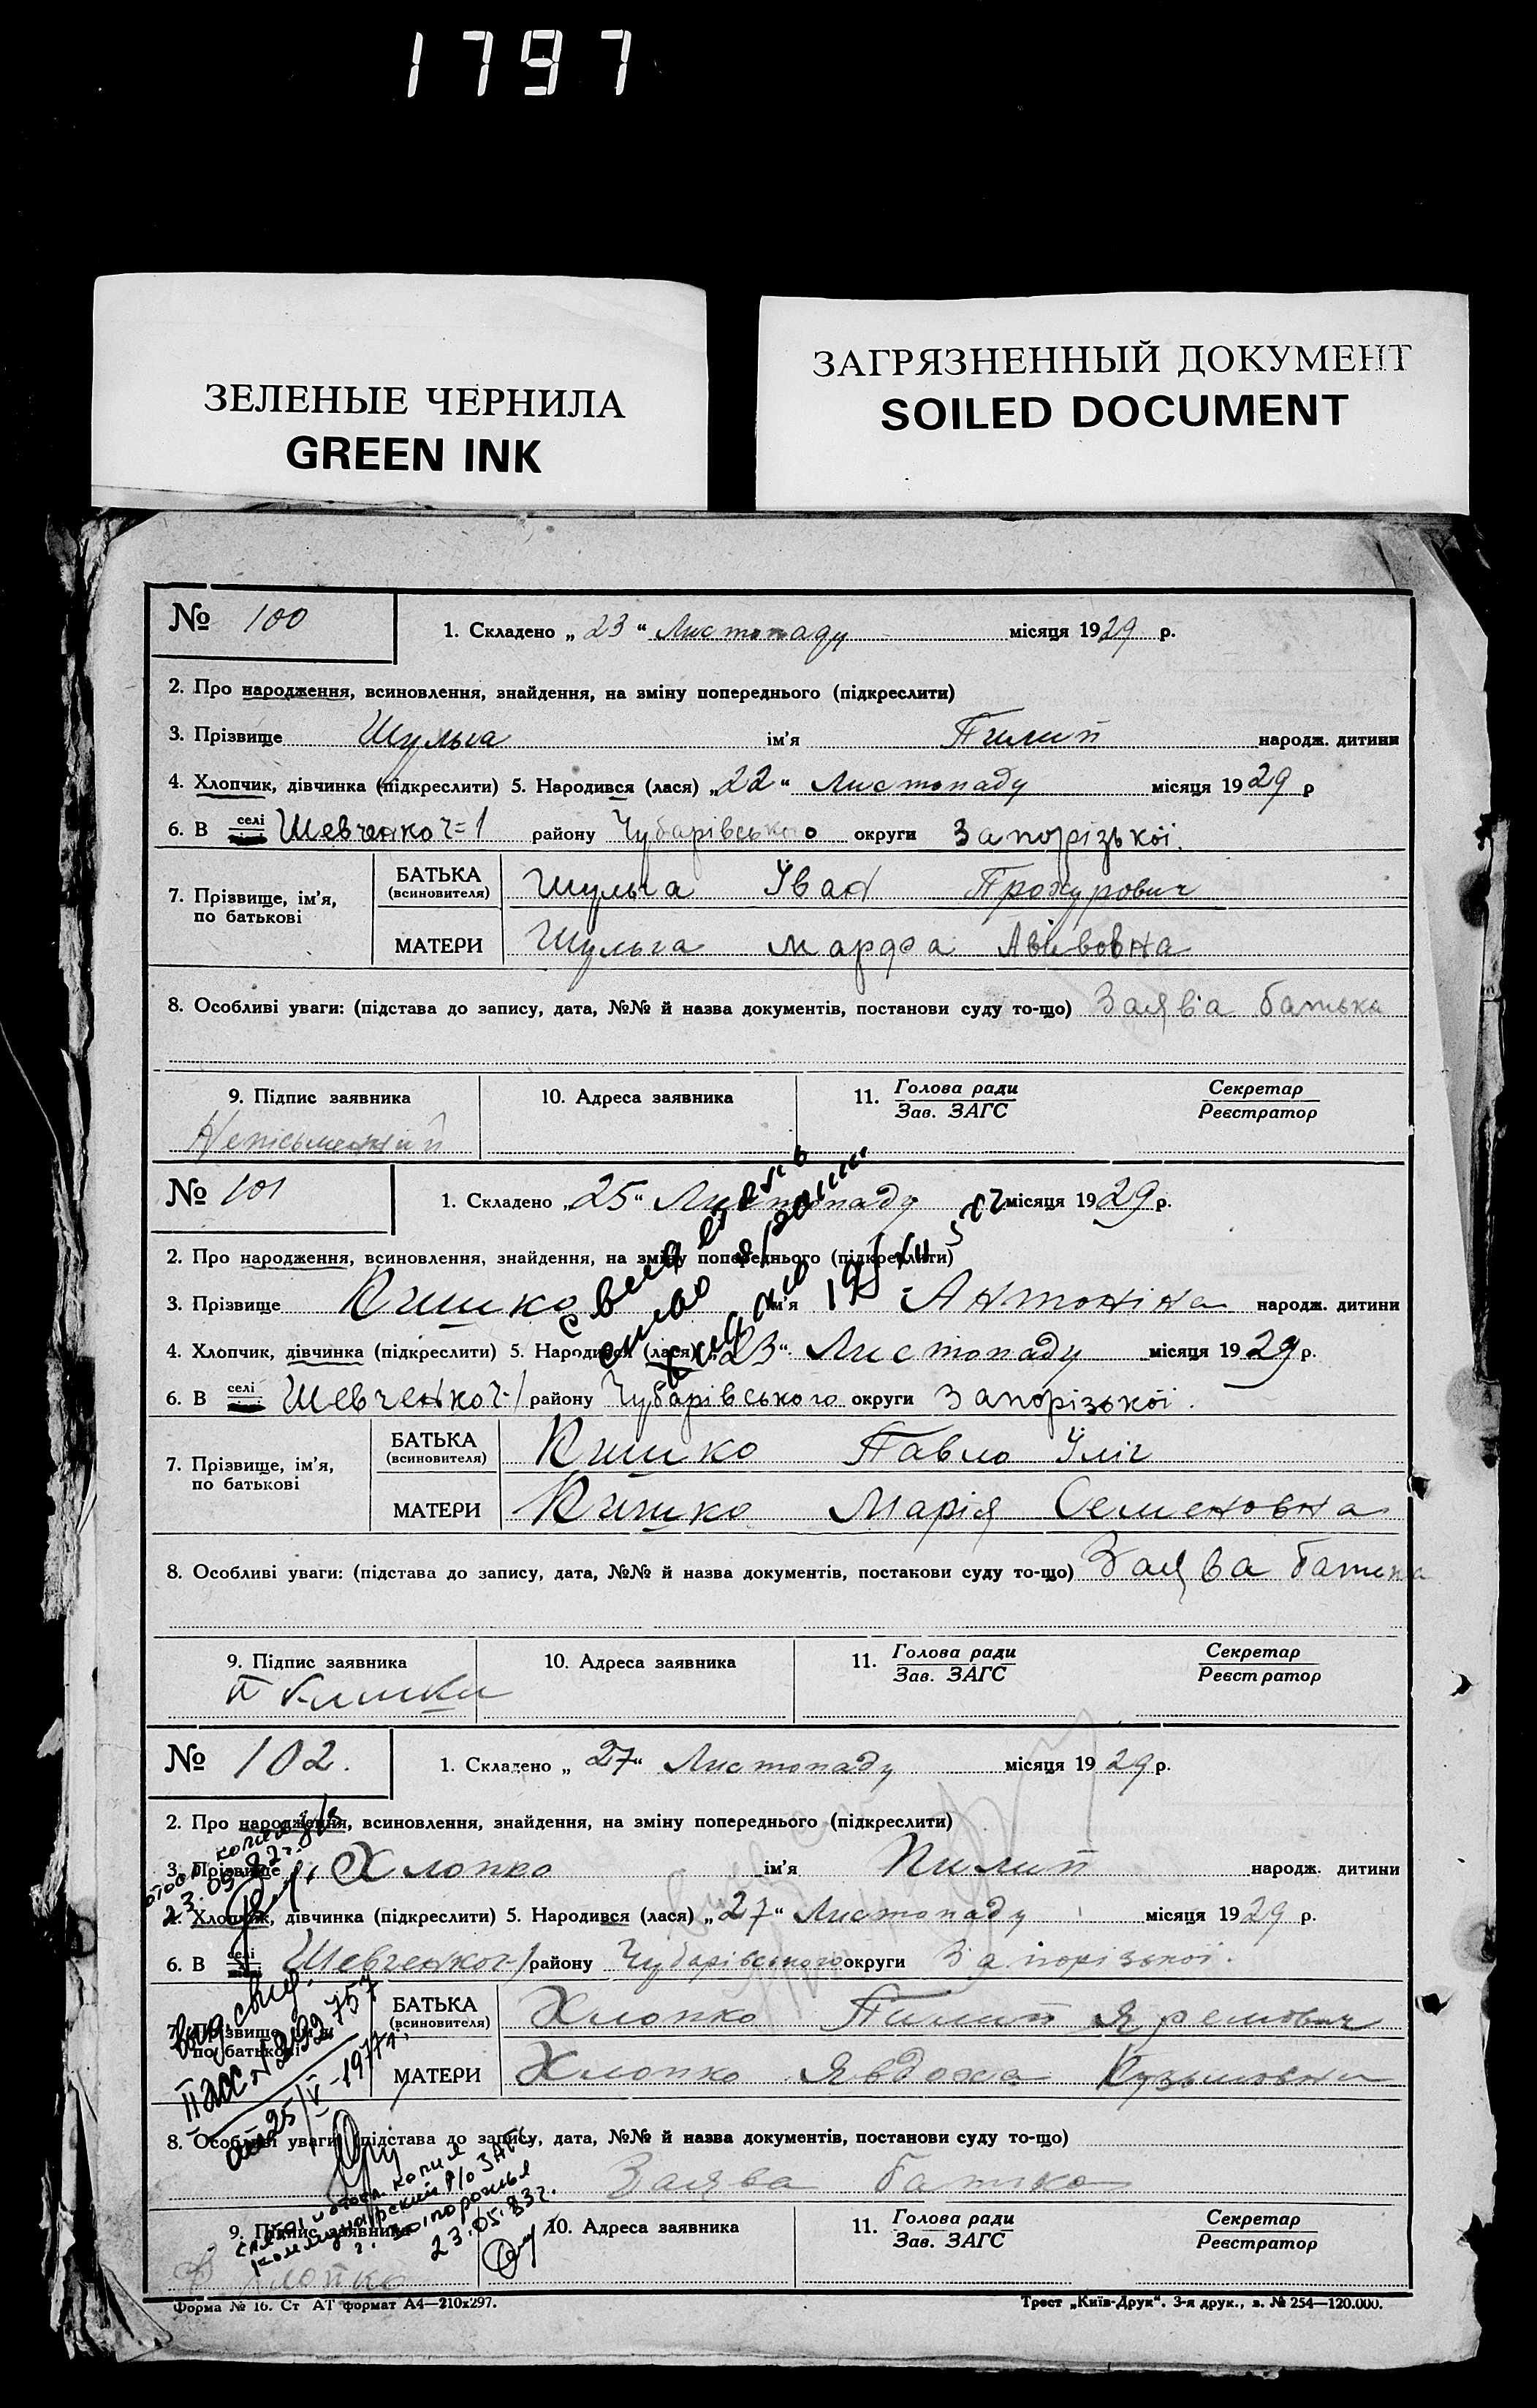 1797
ЗЕЛЕНЫЕ ЧЕРНИЛА
GREEN INK
ЗАГРЯЗНЕННЫЙ ДОКУМЕНТ
SOILED DOCUMENT
№ 100 1. Складено „ 23 “ Листопаду місяця 1929 р.
2. Про народження, всиновлення, знайдення, на зміну попереднього (підкреслити)
3. Прізвище Шульга ім'я Пилип народж. дитини
4. Хлопчик, дівчинка (підкреслити) 5. Народився (лася) „22“ Листопаду місяця 1929 р
6. В селі Шевченко ч=1 району Чубарівського округи Запорізької.
7. Прізвище, ім'я, по батькові
БАТЬКА (всиновителя) Шульга Їван Прохурович
МАТЕРИ Шульга Марфа
8. Особливі уваги: (підстава до запису, дата, №№ й назва документів, постанови суду то-що) Заява батька
9. Підпис заявника 10. Адреса заявника 11. Голова ради Секретар
Зав. ЗАГС Реєстратор
Неписьменний
№ 101 1. Складено „25“ Листопаду місяця 1929 р.
2. Про народження, всиновлення, знайдення, на зміну попереднього (підкреслити)
3. Прізвище Кишко ім'я Антоніна народж. дитини
4. Хлопчик, дівчинка (підкреслити) 5. Народився (лася) „23“ Листопаду місяця 1929 р.
6. В селі Шевченко ч-1 району Чубарівського округи Запорізької.
7. Прізвище, ім'я, по батькові
БАТЬКА (всиновителя) Кишко Павло Їліч
МАТЕРИ Кишко Марія Семеновна
8. Особливі уваги: (підстава до запису, дата, №№ й назва документів, постакови суду то-що) Заява батька
9. Підпис заявника 10. Адреса заявника 11. Голова ради Секретар
Зав. ЗАГС Реєстратор
П Кишки
№ 102. 1. Складено „ 27“ Листопаду місяця 1929 р.
2. Про народження, всиновлення, знайдення, на зміну попереднього (підкреслити)
3. Прізвище Хлопко ім'я Пилип народж. дитини
23.09.82г.
4. Хлопчик, дівчинка (підкреслити) 5. Народився (лася) „27“ Листопаду місяця 1929 р.
6. В селі Шевченко ч-1 району Чубарівського округи Запорізької.
7. Прізвище, ім'я, по батькові
БАТЬКА (всиновителя) Хлопко Пилип Яремович
МАТЕРИ Хлопко Явдоха Кузьмовна
25/V-1977г.
8. Особливі уваги: (підстава до запису, дата, №№ й назва документів, постанови суду то-що)
Заява батька
копия
р/о ЗАГС
г. Запорожья
23.05.83г.
9. Підпис заявника 10. Адреса заявника 11. Голова ради Секретар
Зав. ЗАГС Реєстратор
Хлопко
Форма № 16. Ст АТ формат А4—210х297. Трест „Київ-Друк“. 3-я друк., з. № 254—120.000.